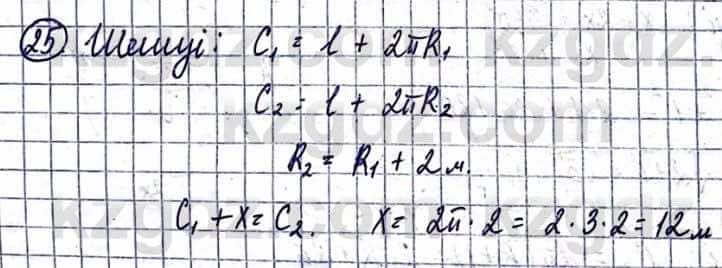 25 Шешуі: C₁ = l + 2πR₁
C₂ = l + 2πR₂
R₂ = R₁ + 2 м.
C₁ + x = C₂. x = 2π · 2 = 2 · 3 · 2 = 12 м
kzgdz.com